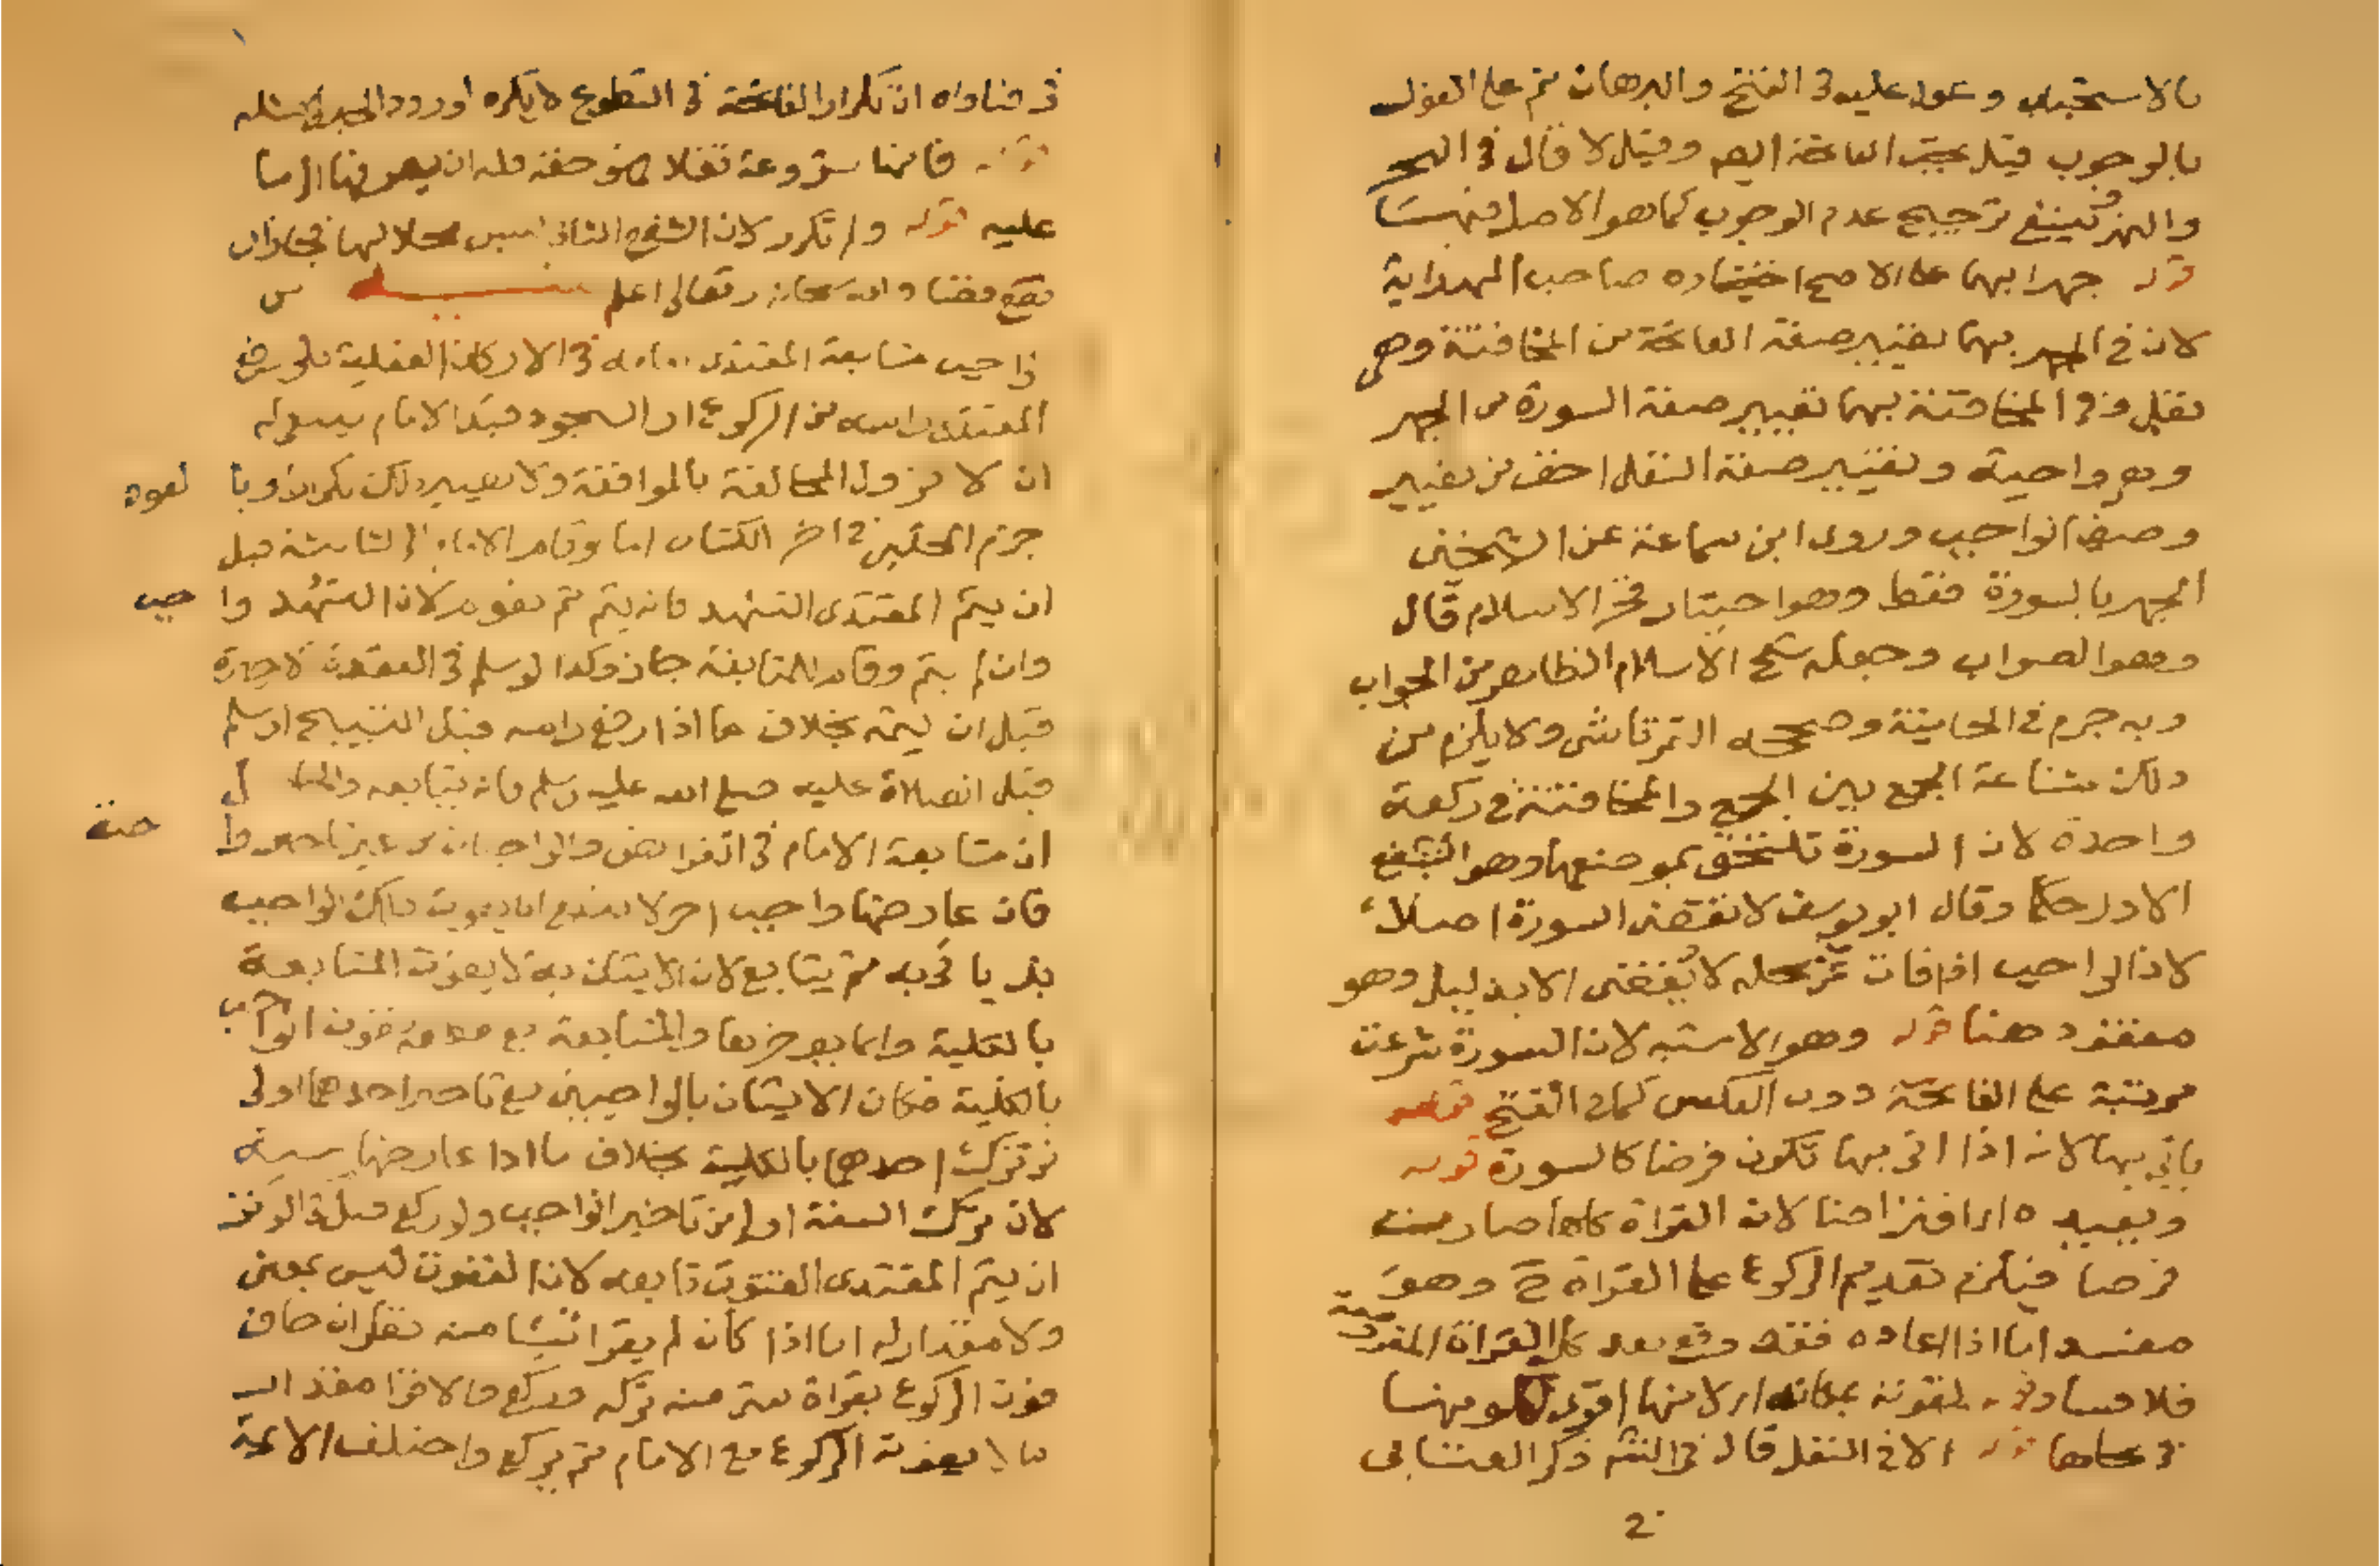 بالاستحباب وعول عليه في الفتح والبرهان ثم على القول
بالوجوب قيل تجب الفاتحة ايضا وقيل لا قال في البحر
والنهر ينبغي ترجيح عدم الوجوب كما هو الاصل فيهسا
قوله جهرا بهما على الاصح اختاره صاحب الهداية
لان في الجهر بهما تغيير صفة الفاتحة من المخافتة وهي
نفل وفي المخافتة بهما تغيير صفة السورة من الجهر
وهو واجبة وتغيير صفة النفل اخف من تغيير
وصف الواجب وروى ابن سماعة عن الشيخين
الجهر بالسورة فقط وهو اختيار فخر الاسلام قال
وهو الصواب وجعله شيخ الاسلام الظاهر من الجواب
وبه جزم في الخانية وصححه التمرتاشي ولا يلزم من
ذلك شناعة الجمع بين الجهر والمخافتة في ركعة
واحدة لان السورة تلتحق بموضعها وهو الشفع
الاول حكما وقال ابو يوسف لا تقضى السورة اصلا
لان الواجب اذا فات عن محله لا يقضى الا بدليل وهو
مفقود هنا قوله وهو الاشبه لان السورة شرعت
مرتبة على الفاتحة دون العكس كما في الفتح قوله
ياتي بها لانه اذا اتى بها تكون فرضا كالسورة قوله
ويعيده اي افتراضا لان القراة كلها صارت
فرضا فيلزم تقديم الركوع على القراة ح وهو
مفسد اما اذا اعاده فقد وقع بعد كل القراة المفروضة
فلا فساد قوله لفوته بمكانه اي لانها اقوى لكونها
في محلها قوله الا في النفل قال في النهر ذكر العتابي
في فتاواه ان تكرار الفاتحة في التطوع لا يكره لورود الخبر في مثله
قوله فانها مشروعة نفلا في حقه فله ان يصرفها الى ما
عليه قوله ولم تكرر لان الشفع الثاني ليس محلا لها فجاز ان
تقع قضا والله سبحانه وتعالى اعلم تنبيه من
الواجب متابعة المقتدي امامه في الاركان الفعلية فلو رفع
المقتدي راسه من الركوع او السجود قبل الامام ينبغي له
ان لا تزول المخالفة بالموافقة ولا يصير ذلك تكرارا وبا لعود
جزم الحلبي في اخر الكتاب اما لو قام الامام الى الثالثة قبل
ان يتم المقتدي التشهد فانه يتم ثم يقوم لان التشهد وا جب
وان لم يتم وقام للمتابعة جاز وكذا لو سلم في القعدة الاخيرة
قبل ان يتمه بخلاف ما اذا رفع راسه قبل التسبيح او سلم
قبل الصلاة عليه صلى الله عليه وسلم فانه يتابعه والحا ل
ان متابعة الامام في الفرائض والواجبات من غير تاخير وا جبة
فان عارضها واجب اخر لا ينبغي ان يفوت ذلك الواجب
بل ياتي به ثم يتابع لان الاتيان به لا يفوت المتابعة
بالكلية وانما يؤخرها والمتابعة مع قطعه تفوت الواجب
بالكلية فكان الاتيان بالواجبين مع تاخير احدهما اولى
من ترك احدهما بالكلية بخلاف ما اذا عارضها سنة
لان ترك السنة اولى من تاخير الواجب ولو ركع قبل في الوتر
ان يتم المقتدي القنوت تابعه لان القنوت ليس بمعين
ولا مقدار له اما اذا كان لم يقرا شيئا منه تظران خاف
فوت الركوع بقراة شي منه تركه وركع والا قرا مقدار
ما لا يفوته الركوع مع الامام ثم يركع واختلف الائمة
2